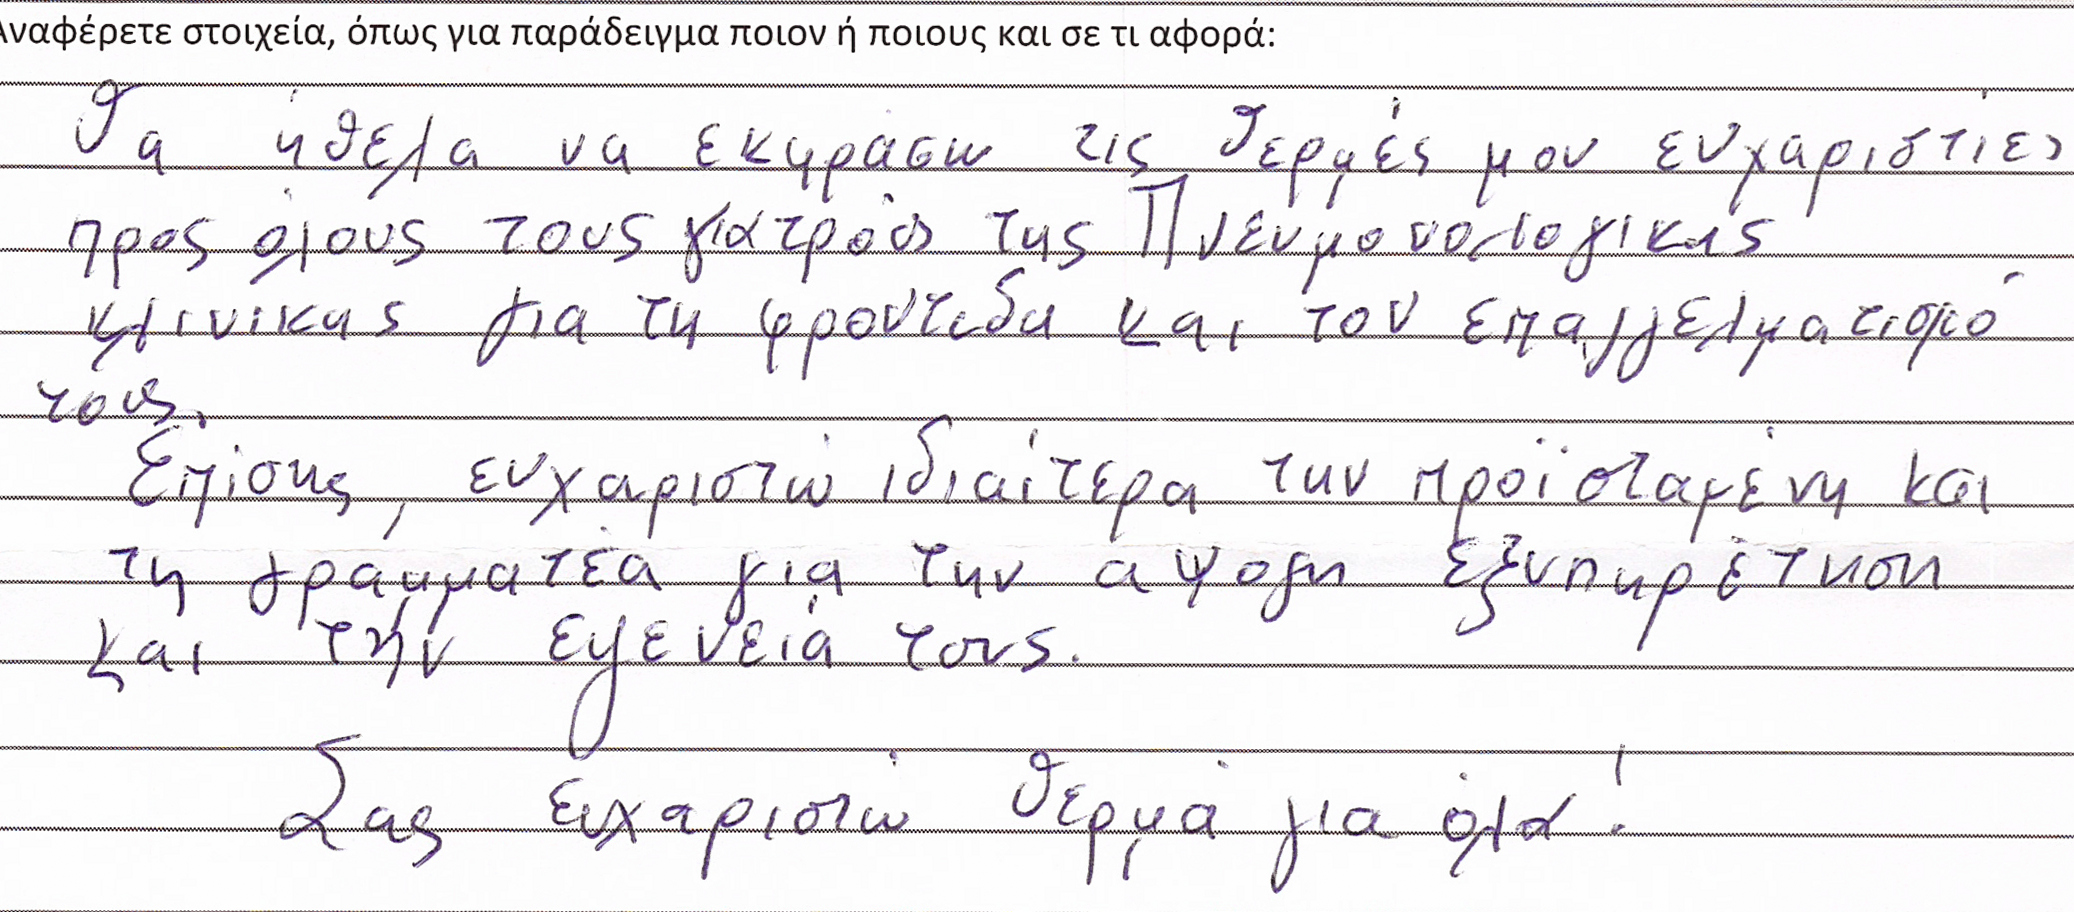 Αναφέρετε στοιχεία, όπως για παράδειγμα ποιον ή ποιους και σε τι αφορά:
Θα ήθελα να εκφράσω τις θερμές μου ευχαριστίες
προς όλους τους γιατρούς της Πνευμονολογικής
κλινικης για τη φροντίδα και τον επαγγελματισμό
τους.
Επίσης, ευχαριστώ ιδιαίτερα την προϊσταμένη και
τη γραμματέα για την αψογη εξυπηρέτηση
και την ευγένειά τους.
Σας ευχαριστώ θερμά για όλα!